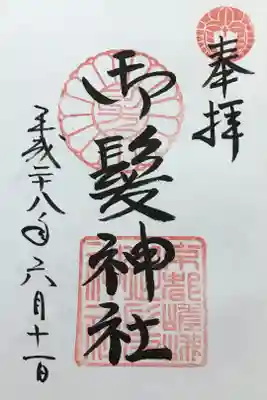 奉拝
御髪神社
平成二十八年六月十一日